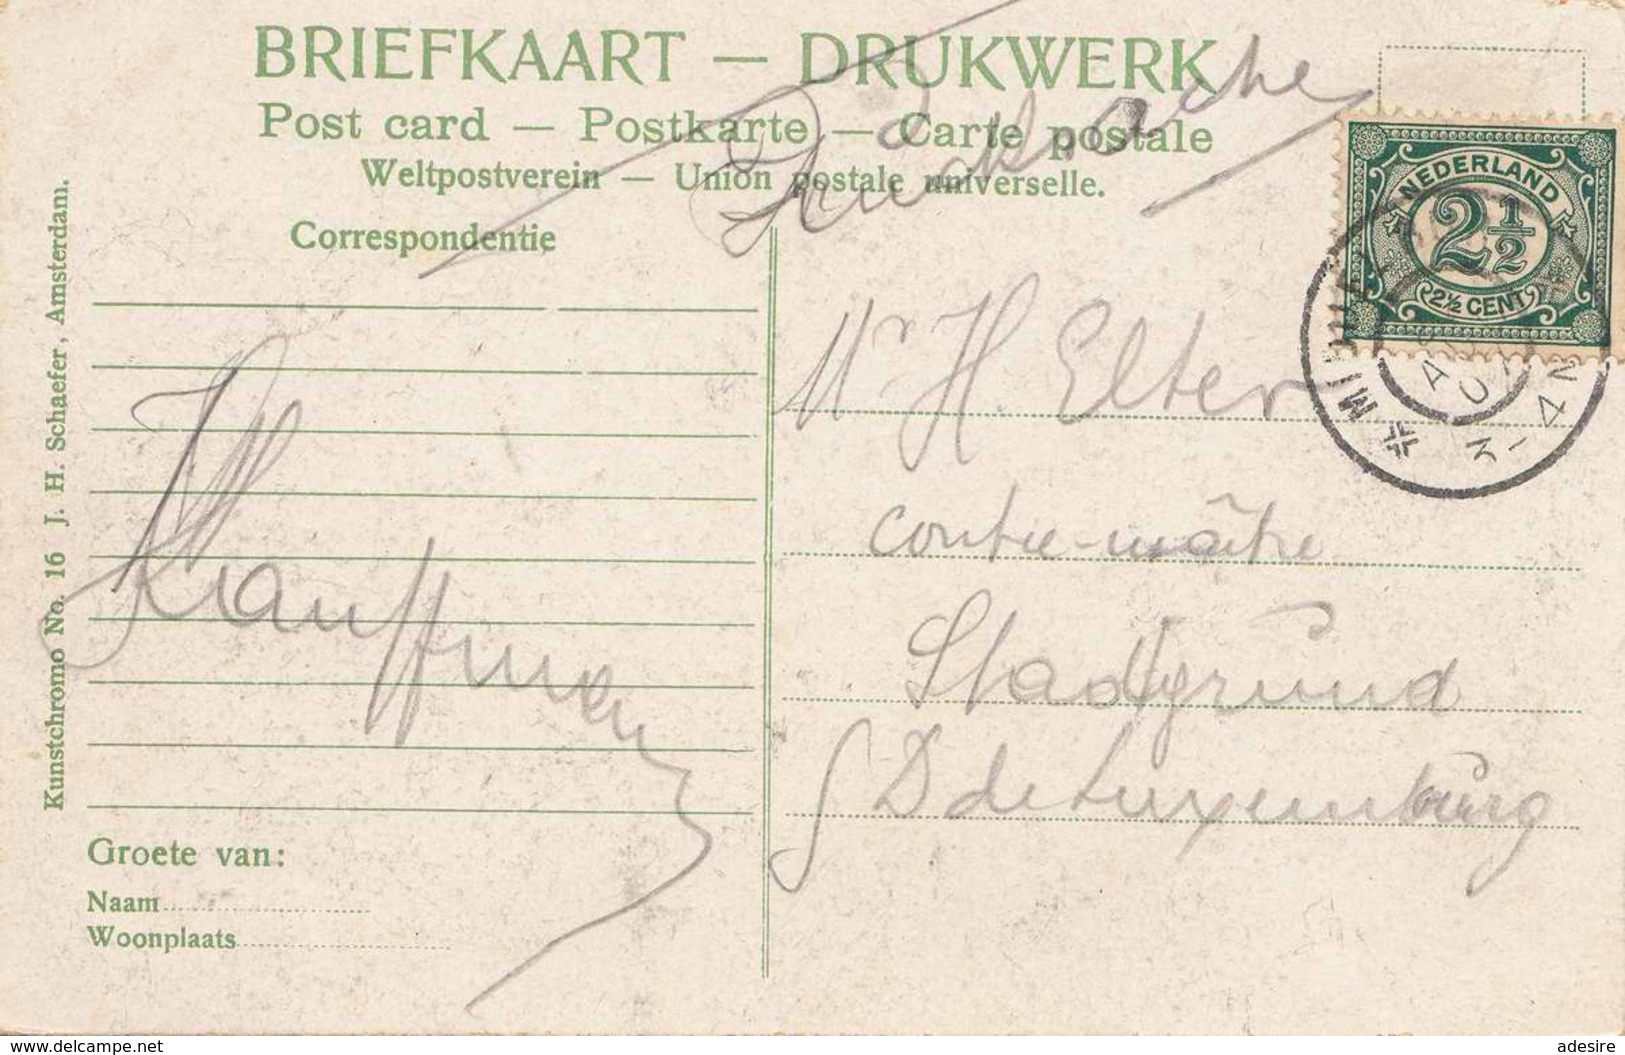 BRIEFKAART — DRUKWERK
Post card — Postkarte — Carte postale
Weltpostverein — Union postale universelle.
Drucksache
Correspondentie
Kunstchromo No. 16 J. H. Schaefer, Amsterdam.
NEDERLAND
2½
2½ CENT
3-4 N
Mr H. Elter
contre-maître
Stadtgrund
G D de Luxemburg
Kauffman
Groete van:
Naam
Woonplaats
www.delcampe.net
adesire